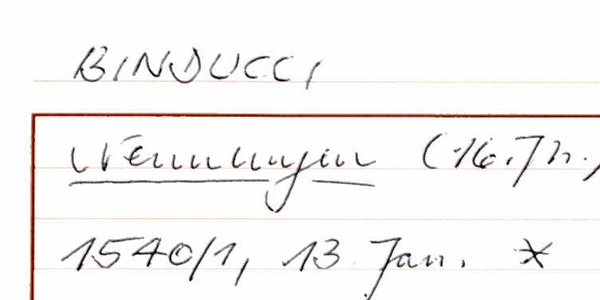 BINDUCCI,
Wenningen (16. Jh.)
1540/1, 13 Jan. *